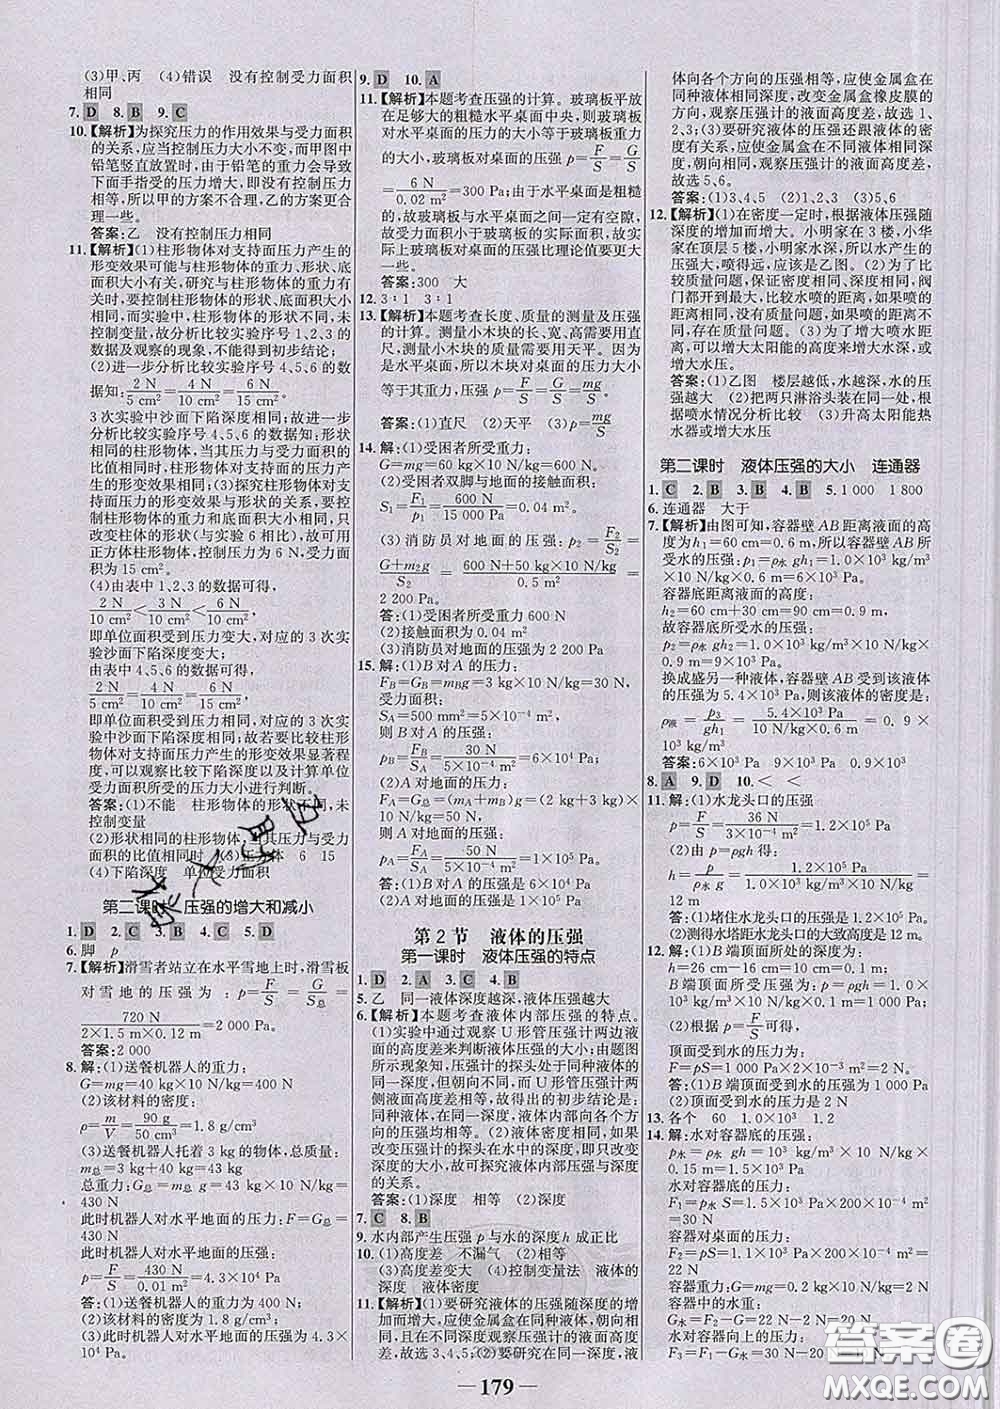 (3)甲、丙 (4)错误 没有控制受力面积
相同
7. D 8. B 9. C
10.【解析】为探究压力的作用效果与受力面积
的关系,应当控制压力大小不变,而甲图中
铅笔竖直放置时,由于铅笔的重力会导致
下面手指受的压力增大,即没有控制压力
相等,所以甲的方案不合理,乙的方案更合理
一些。
答案:乙 没有控制压力相同
11.【解析】(1)柱形物体对支持面压力产生的
形变效果可能与柱形物体的重力、形状、底
面积大小有关,研究与柱形物体的重力有
关时,要控制柱形物体的形状、底面积大小
相同,而实验中,物体的形状不相同,未
控制变量,故分析比较实验序号1、2、3的
数据及观察的现象,不能得到初步结论;
(2)进一步分析比较实验序号4、5、6的数
据知:2 N/5 cm²=4 N/10 cm²=6 N/15 cm²,
3次实验中沙面下陷深度相同;故进一步分
析比较实验序号4、5、6的数据知:形状
相同的柱形物体,当其压力与受力面积的
比值相同时,它对支持面压力产生的形变
效果相同;(3)探究柱形物体对支持面压力
产生的形变效果与形状的关系,要控制柱
形物体的重力和底面积大小相同,只
改变柱体的形状(与实验6相比),故可用
正方体柱形物体,控制压力为6 N,受力面
积为15 cm²。
(4)由表中1、2、3的数据可得,
2 N/10 cm²<3 N/10 cm²<6 N/15 cm²,
即单位面积受到压力变大,对应的3次实
验沙面下陷深度变大;
由表中4、5、6的数据可得,
2 N/5 cm²=4 N/10 cm²=6 N/15 cm²,
即单位面积受到压力相同,对应的3次实
验沙面下陷深度相同;故若要比较柱形物
体对支持面压力产生的形变效果显著程
度,可以观察比较下陷深度以及计算单位
受力面积所受的压力大小进行判断。
答案:(1)不能 柱形物体的形状不相同,未
控制变量
(2)形状相同的柱形物体,当其压力与受力
面积的比值相同时 (3)正方体 6 15
(4)下陷深度 单位受力面积
第二课时 压强的增大和减小
1. D 2. C 3. B 4. C 5. D
6. 脚 p
7.【解析】滑雪者站立在水平雪地上时,滑雪板
对雪地的压强为:p=F/S=G/S总=
720 N/(2×1.5 m×0.12 m)=2 000 Pa。
答案:2 000
8. 解:(1)送餐机器人的重力:
G=mg=40 kg×10 N/kg=400 N;
(2)该材料的密度:
ρ=m/V=90 g/50 cm³=1.8 g/cm³;
(3)送餐机器人托着3 kg的物体,总质量:
m总=3 kg+40 kg=43 kg
总重力:G总=m总g=43 kg×10 N/kg=
430 N
此时机器人对水平地面的压力:F=G总=
430 N
此时机器人对水平地面的压强:
p=F/S=430 N/0.01 m²=4.3×10⁴ Pa。
答:(1)送餐机器人的重力为400 N;
(2)该材料的密度为1.8 g/cm³;
(3)此时机器人对水平地面的压强为4.3×
10⁴ Pa。
9. D 10. A
11.【解析】本题考查压强的计算。玻璃板平放
在足够大的粗糙水平桌面中央,则玻璃板
对水平桌面的压力的大小等于玻璃板重力
的大小,玻璃板对桌面的压强 p=F/S=G/S
=6 N/0.02 m²=300 Pa;由于水平桌面是粗糙
的,玻璃板与水平桌面之间一定有空隙,
故受力面积小于玻璃板的实际面积,故实
际上玻璃板对桌面的压强比理论值要更大
一些。
答案:300 大
12. 3∶1 3∶1
13.【解析】本题考查长度、质量的测量及压强
的计算。测量小木块的长、宽、高需要用直
尺,测量小木块的质量需要用天平。因为
是水平桌面,所以木块对桌面的压力大小
等于其重力,压强 p=F/S=G/S=mg/S。
答案:(1)直尺 (2)天平 (3)p=mg/S
14. 解:(1)受困者所受重力:
G=mg=60 kg×10 N/kg=600 N;
(2)受困者双脚与地面的接触面积:
S₁=F₁/p₁=600 N/15 000 Pa=0.04 m²;
(3)消防员对地面的压强:p₂=F₂/S₂=
(G+m₂g)/S₂=(600 N+50 kg×10 N/kg)/0.5 m²=
2 200 Pa。
答:(1)受困者所受重力600 N
(2)接触面积为0.04 m²
(3)消防员对地面的压强为2 200 Pa
15. 解:(1)B对A的压力:
FB=GB=mBg=3 kg×10 N/kg=30 N,
受力面积:
SA=500 mm²=5×10⁻⁴ m²,
则B对A的压强:
pB=FB/SA=30 N/(5×10⁻⁴ m²)=6×10⁴ Pa;
(2)A对地面的压力:
FA=G总=(mA+mB)g=(2 kg+3 kg)×
10 N/kg=50 N,
则A对地面的压强:
pA=FA/SA=50 N/(5×10⁻⁴ m²)=1×10⁵ Pa。
答:(1)B对A的压强为6×10⁴ Pa
(2)A对地面的压强为1×10⁵ Pa
第2节 液体的压强
第一课时 液体压强的特点
1. D 2. A 3. C 4. B
5. 乙 同一液体深度越深,液体压强越大
6.【解析】本题考查液体内部压强的特点。
(1)实验中通过观察U形管压强计两边液面
的高度差来判断液体压强的大小;由题图
所示现象知,压强计的探头处于同种液体的
同一深度,但朝向不同,而U形管压强计两
侧液面高度差相等,故得出的初步结论是:
同种液体,在同一深度,液体内部向各个方
向的压强均相等。(2)液体密度相同,如果
改变压强计的探头在水中的深度,即只改变
深度,故可探究液体内部压强与深度的
关系。
答案:(1)深度 相等 (2)深度
7. C 8. B
9. 水内部产生压强p与水的深度h成正比
10. (1)高度差 不漏气 (2)相等
(3)高度差变大 (4)控制变量法 液体的
深度 液体密度
11.【解析】(1)要研究液体的压强随深度的增
加而增大,应使金属盒在同种液体中,朝向
相同,在不同深度观察压强计的液面高度
差,故选3、4、5;(2)要研究在同一深度,液
体向各个方向的压强相等,应使金属盒在
同种液体相同深度,改变金属盒橡皮膜的
方向,观察压强计的液面高度差,故选1、
2、3;(3)要研究液体的压强还跟液体的密
度有关系,应使金属盒在不同液体相同深
度,朝向相同,观察压强计的液面高度差,
故选5、6。
答案:(1)3、4、5 (2)1、2、3 (3)5、6
12.【解析】(1)在密度一定时,根据液体压强随
深度的增加而增大。小明家在3楼,小华
家在顶层5楼,小明家水深,所以水产生的
压强大,喷得远,应该是乙图。(2)为了比
较质量问题,保证密度相同、深度相同,阀
门都开到最大,比较水喷的距离,如果喷的
距离一样,没有质量问题,如果距离不同,
存在质量问题。(3)为了增大喷水距
离,可以增大太阳能的高度来增大水深,或
增大水压。
答案:(1)乙图 楼层越低,水越深,水的压
强越大 (2)把两只淋浴头装在同一处,根
据喷水情况分析比较 (3)升高太阳能热
水器或增大水压
第二课时 液体压强的大小 连通器
1. C 2. B 3. B 4. B 5. 1 000 1 800
6. 连通器 大于
7.【解析】由图可知,容器壁AB距离液面的高
度为h₁=60 cm=0.6 m,所以容器壁AB
所受水的压强:p₁=ρ水gh₁=1.0×10³ kg/m³
×10 N/kg×0.6 m=6×10³ Pa。
容器底距离液面的高度:
h₂=60 cm+30 cm=90 cm=0.9 m,
故容器底所受水的压强:
p₂=ρ水gh₂=1.0×10³ kg/m³×10 N/kg×
0.9 m=9×10³ Pa。
换成盛另一种液体,容器壁AB受到该液体
的压强为5.4×10³ Pa,则该液体的密度是:
ρ液=p₃/gh₁=5.4×10³ Pa/(10 N/kg×0.6 m)=0.9×
10³ kg/m³
答案:6×10³ Pa 9×10³ Pa 0.9×10³
8. A 9. D 10. < <
11. 解:(1)水龙头口的压强
p=F/S=36 N/(3×10⁻⁴ m²)=1.2×10⁵ Pa;
(2)由p=ρgh得:
h=p/ρ水g=1.2×10⁵ Pa/(1.0×10³ kg/m³×10 N/kg)=
12 m
答:(1)堵住水龙头口的压强为1.2×10⁵ Pa
(2)测得水塔距水龙头的大致高度是12 m
12. 解:(1)B端顶面所处的深度为:
h=26 cm-16 cm=10 cm=0.10 m,
B端顶面受到水的压强:
p=ρgh=1.0×10³ kg/m³×10 N/kg×
0.10 m=1 000 Pa;
(2)根据p=F/S可得,
顶面受到水的压力为:
F=pS=1 000 Pa×2×10⁻³ m²=2 N。
答:(1)B端顶面受到水的压强为1 000 Pa
(2)顶面受到水的压力为2 N
13. 各个 60 1.0×10³ 1.2
14. 解:水对容器底的压强:
p水=ρ水gh=1.0×10³ kg/m³×10 N/kg×
0.15 m=1.5×10³ Pa
水对容器底的压力:
F₁=p水S=1.5×10³ Pa×200×10⁻⁴ m²
=30 N
容器对桌面的压力:
F₂=pS=1.1×10³ Pa×200×10⁻⁴ m²
=22 N
容器重力:G=mg=0.2 kg×10 N/kg=2 N
容器中的水重:
G水=F₂-G=22 N-2 N=20 N
水对容器向上的压力:
F₃=F₁-G水=30 N-20 N=10 N
179
答案圈
MXQE.COM